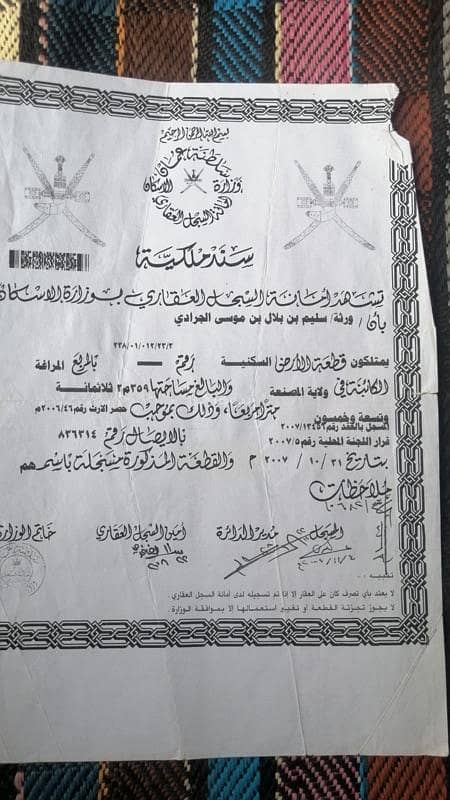 بسم الله الرحمن الرحيم
سلطنة عمان
وزارة الاسكان
أمانة السجل العقاري
سند ملكية
تشهد أمانة السجل العقاري بوزارة الاسكان
بأن / ورثة/ سليم بن بلال بن موسى الجرادي
٢٣٨/٠١/٠١٢/٢٣/٢
يمتلكون قطعة الأرض السكنية رقم — بالمربع المراغة
الكائنة في ولاية المصنعة والبالغ مساحتها ٣٥٩م٢ ثلاثمائة
وتسعة وخمسون متر مربعا، وذلك بموجب حصر الارث رقم ٢٠٠٦/٤٦م
المسجل بالعقد رقم
قرار اللجنة المحلية رقم ٢٠٠٧/٥ بالايصال رقم ٨٣٦٣١٤
بتاريخ ٣١ / ١٠ / ٢٠٠٧ م والقطعة المذكورة مسجلة باسمهم
ملاحظات
المسجل مدير الدائرة أمين السجل العقاري خاتم الوزارة
تنبيه
لا يعتد بأي تصرف كان على العقار إلا إذا تم تسجيله لدى أمانة السجل العقاري.
لا يجوز تجزئة القطعة أو تغيير استعمالها إلا بموافقة الوزارة.